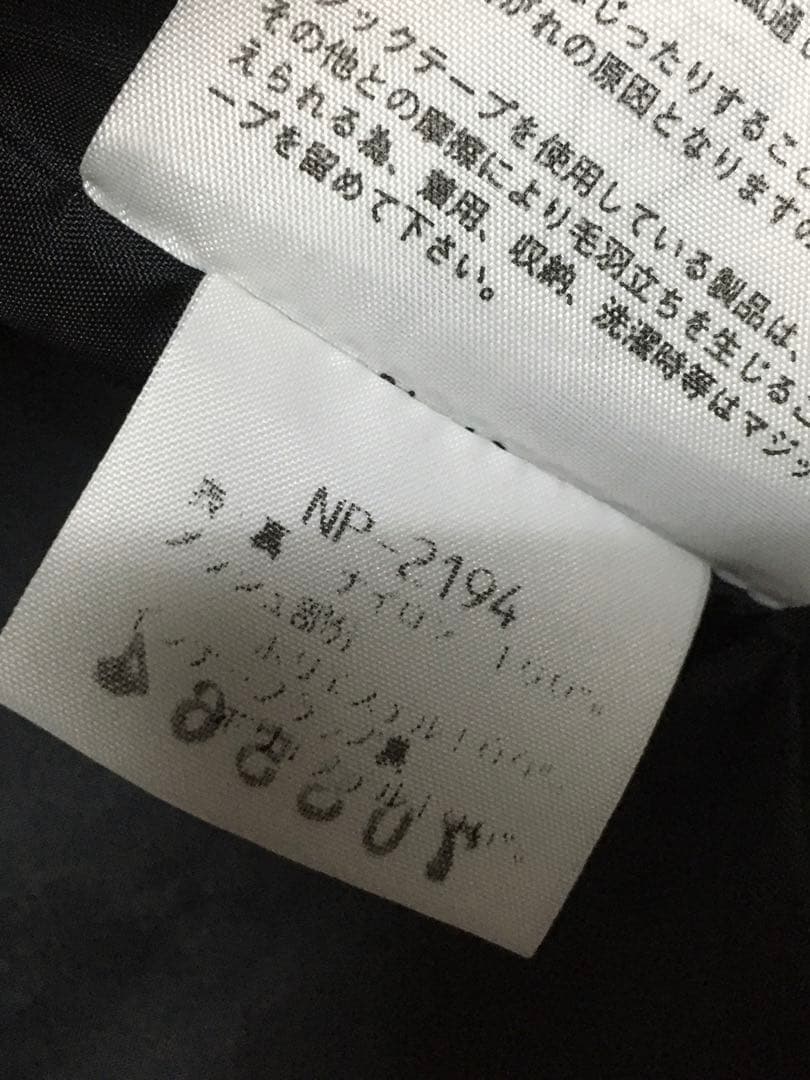 じったりすること
がれの原因となりますの
ックテープを使用している製品は、
その他との摩擦により毛羽立ちを生じるこ
えられる為、着用、収納、洗濯時等はマジッ
ープを留めて下さい。
NP-2194
表・裏 ナイロン 100%
メッシュ部分
ポリエステル100%